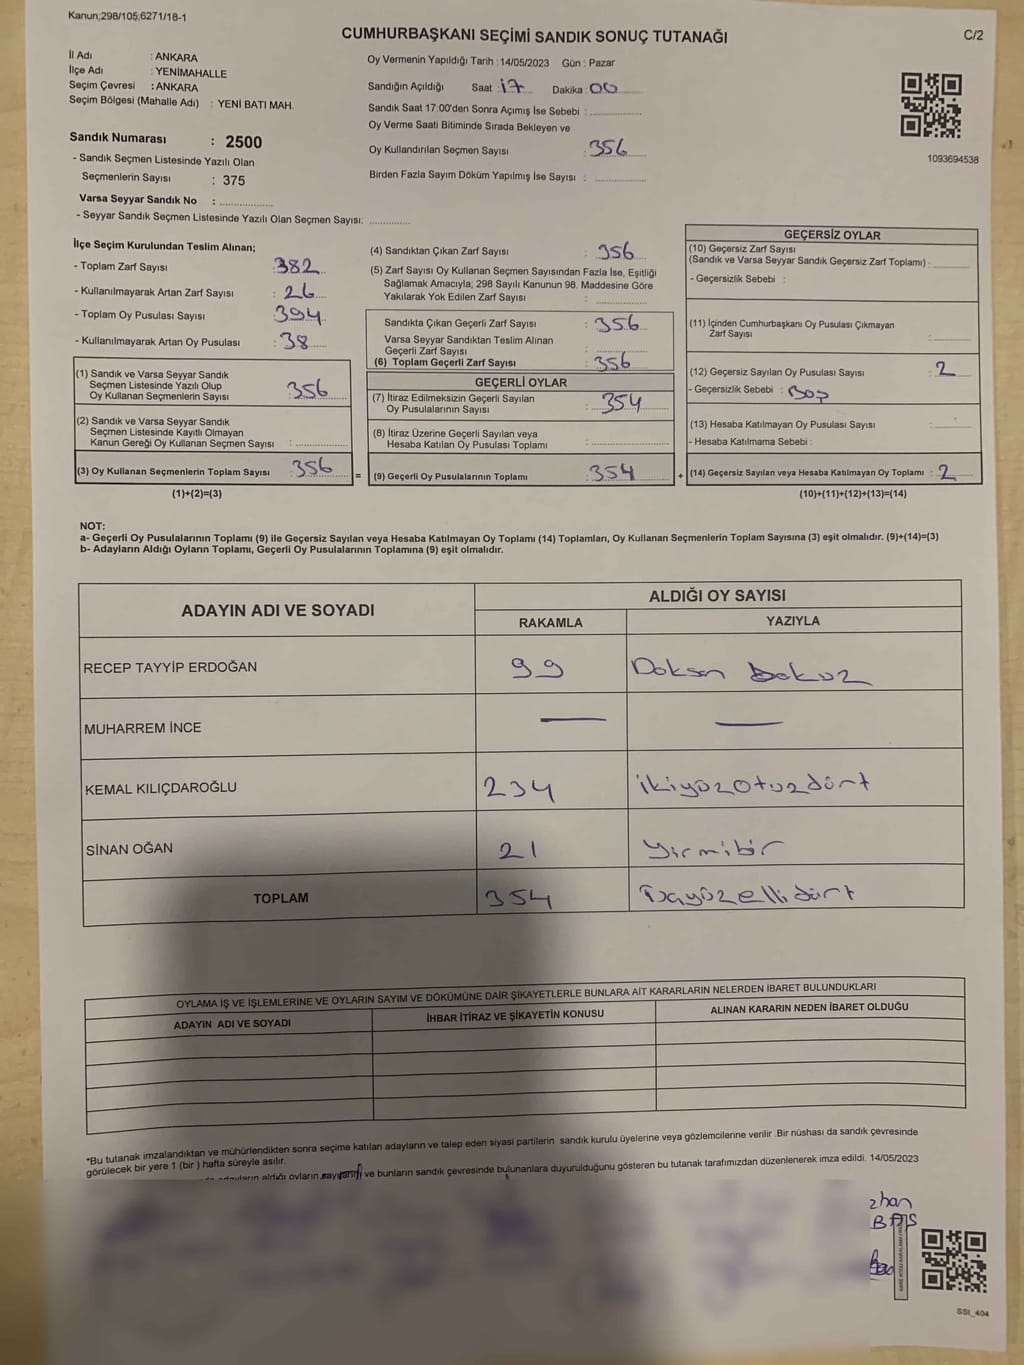 Kanun;298/105,6271/18-1
CUMHURBAŞKANI SEÇİMİ SANDIK SONUÇ TUTANAĞI
C/2
İl Adı : ANKARA
İlçe Adı : YENİMAHALLE
Seçim Çevresi : ANKARA
Seçim Bölgesi (Mahalle Adı) : YENİ BATI MAH.
Oy Vermenin Yapıldığı Tarih : 14/05/2023 Gün : Pazar
Sandığın Açıldığı Saat : 17 Dakika : 00
Sandık Saat 17:00'den Sonra Açımış İse Sebebi :
Oy Verme Saati Bitiminde Sırada Bekleyen ve
Oy Kullandırılan Seçmen Sayısı : 356
Birden Fazla Sayım Döküm Yapılmış İse Sayısı :
1093694538
Sandık Numarası : 2500
- Sandık Seçmen Listesinde Yazılı Olan
Seçmenlerin Sayısı : 375
Varsa Seyyar Sandık No :
- Seyyar Sandık Seçmen Listesinde Yazılı Olan Seçmen Sayısı:
İlçe Seçim Kurulundan Teslim Alınan;
- Toplam Zarf Sayısı : 382
- Kullanılmayarak Artan Zarf Sayısı : 26
- Toplam Oy Pusulası Sayısı : 394
- Kullanılmayarak Artan Oy Pusulası : 38
(1) Sandık ve Varsa Seyyar Sandık
Seçmen Listesinde Yazılı Olup
Oy Kullanan Seçmenlerin Sayısı : 356
(2) Sandık ve Varsa Seyyar Sandık
Seçmen Listesinde Kayıtlı Olmayan
Kanun Gereği Oy Kullanan Seçmen Sayısı :
(3) Oy Kullanan Seçmenlerin Toplam Sayısı : 356 =
(1)+(2)=(3)
(4) Sandıktan Çıkan Zarf Sayısı : 356
(5) Zarf Sayısı Oy Kullanan Seçmen Sayısından Fazla İse, Eşitliği
Sağlamak Amacıyla; 298 Sayılı Kanunun 98. Maddesine Göre
Yakılarak Yok Edilen Zarf Sayısı :
Sandıkta Çıkan Geçerli Zarf Sayısı : 356
Varsa Seyyar Sandıktan Teslim Alınan
Geçerli Zarf Sayısı :
(6) Toplam Geçerli Zarf Sayısı : 356
GEÇERLİ OYLAR
(7) İtiraz Edilmeksizin Geçerli Sayılan
Oy Pusulalarının Sayısı : 354
(8) İtiraz Üzerine Geçerli Sayılan veya
Hesaba Katılan Oy Pusulası Toplamı :
(9) Geçerli Oy Pusulalarının Toplamı : 354 +
GEÇERSİZ OYLAR
(10) Geçersiz Zarf Sayısı
(Sandık ve Varsa Seyyar Sandık Geçersiz Zarf Toplamı) :
- Geçersizlik Sebebi :
(11) İçinden Cumhurbaşkanı Oy Pusulası Çıkmayan
Zarf Sayısı :
(12) Geçersiz Sayılan Oy Pusulası Sayısı : 2
- Geçersizlik Sebebi : Boş
(13) Hesaba Katılmayan Oy Pusulası Sayısı :
- Hesaba Katılmama Sebebi :
(14) Geçersiz Sayılan veya Hesaba Katılmayan Oy Toplamı : 2
(10)+(11)+(12)+(13)=(14)
NOT:
a- Geçerli Oy Pusulalarının Toplamı (9) ile Geçersiz Sayılan veya Hesaba Katılmayan Oy Toplamı (14) Toplamları, Oy Kullanan Seçmenlerin Toplam Sayısına (3) eşit olmalıdır. (9)+(14)=(3)
b- Adayların Aldığı Oyların Toplamı, Geçerli Oy Pusulalarının Toplamına (9) eşit olmalıdır.
ADAYIN ADI VE SOYADI
ALDIĞI OY SAYISI
RAKAMLA YAZIYLA
RECEP TAYYİP ERDOĞAN 99 Doksan Dokuz
MUHARREM İNCE — —
KEMAL KILIÇDAROĞLU 234 ikiyüzotuzdört
SİNAN OĞAN 21 Yirmibir
TOPLAM 354 üçyüzellidört
OYLAMA İŞ VE İŞLEMLERİNE VE OYLARIN SAYIM VE DÖKÜMÜNE DAİR ŞİKAYETLERLE BUNLARA AİT KARARLARIN NELERDEN İBARET BULUNDUKLARI
ADAYIN ADI VE SOYADI İHBAR İTİRAZ VE ŞİKAYETİN KONUSU ALINAN KARARIN NEDEN İBARET OLDUĞU
*Bu tutanak imzalandıktan ve mühürlendikten sonra seçime katılan adayların ve talep eden siyasi partilerin sandık kurulu üyelerine veya gözlemcilerine verilir .Bir nüshası da sandık çevresinde
görülecek bir yere 1 (bir ) hafta süreyle asılır.
adayların aldığı oyların sayılarını ve bunların sandık çevresinde bulunanlara duyurulduğunu gösteren bu tutanak tarafımızdan düzenlenerek imza edildi. 14/05/2023
zhan
BAŞ
SSI_404